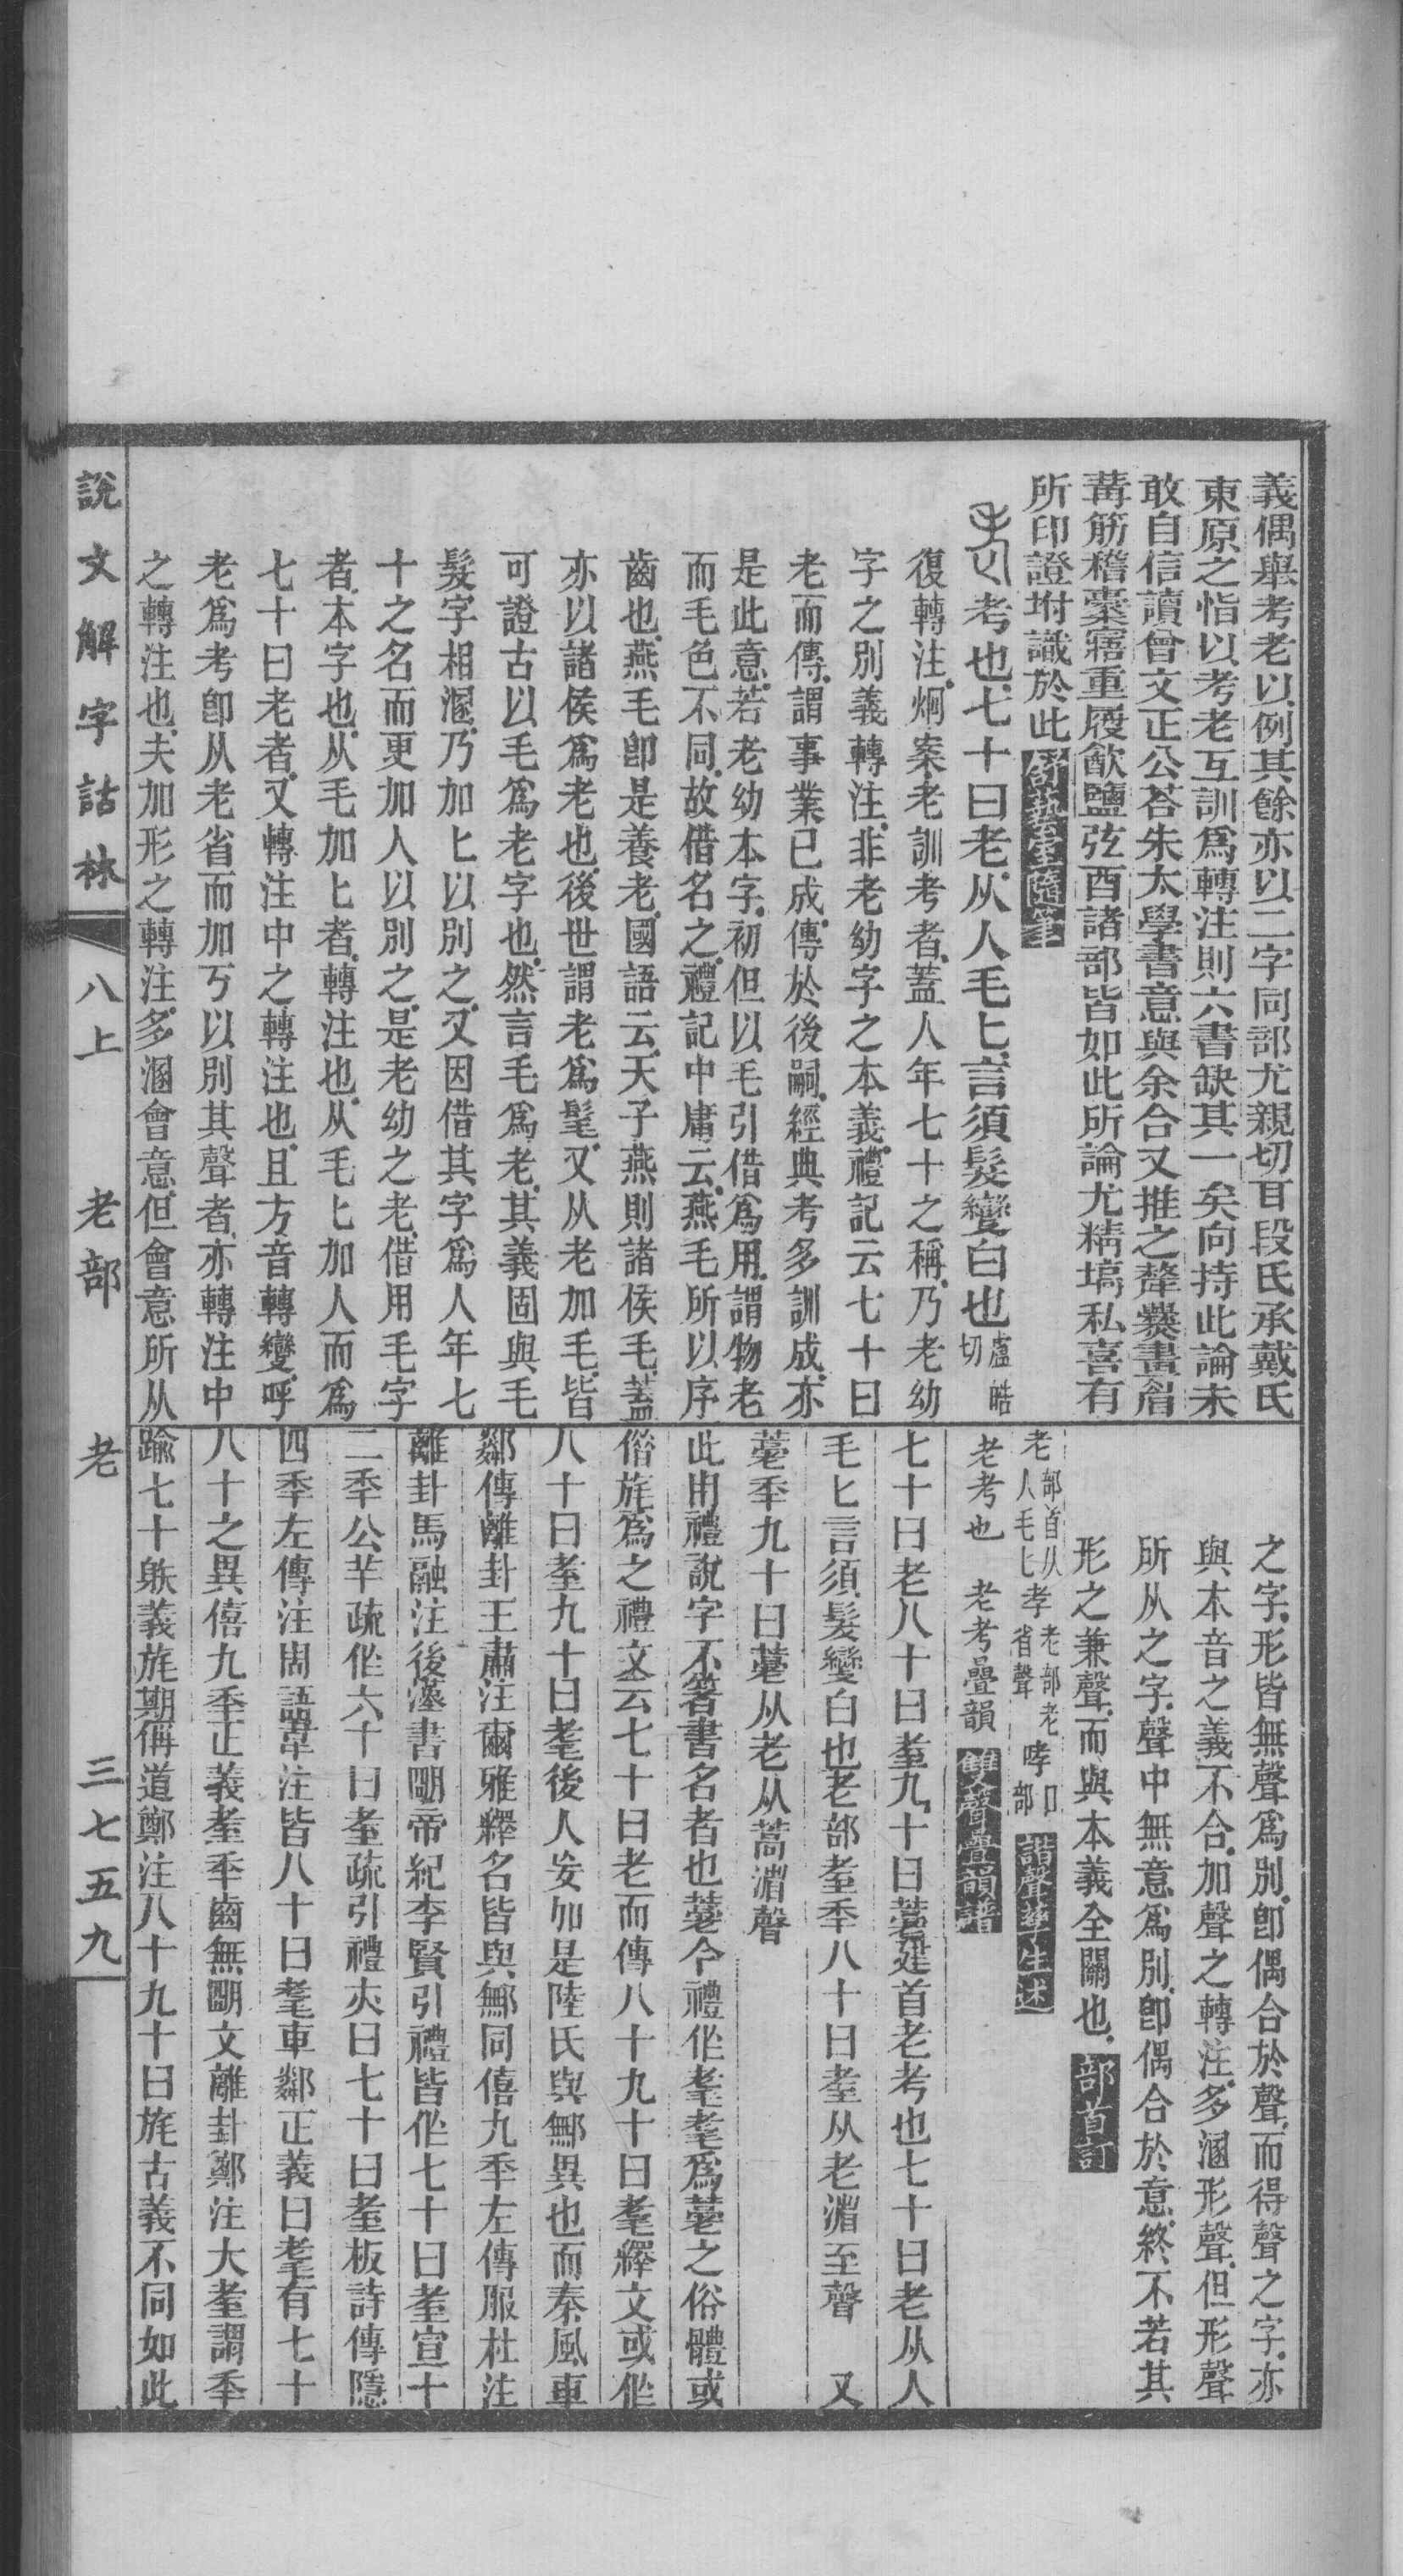 義偶舉考老以例其餘亦以二字同部尤親切耳段氏承戴氏
東原之恉以考老互訓爲轉注則六書缺其一矣向持此論未
敢自信讀曾文正公荅朱太學書意與余合又推之犛爨畫眉
菁筋稽橐寤重履㱃鹽弦酉諸部皆如此所論尤精塙私喜有
所印證坿識於此舒藝室隨筆
考也七十曰老从人毛匕言須髮變白也盧皓切
復轉注炯案老訓考者蓋人年七十之稱乃老幼
字之別義轉注非老幼字之本義禮記云七十曰
老而傳謂事業已成傳於後嗣經典考多訓成亦
是此意若老幼本字初但以毛引借爲用謂物老
而毛色不同故借名之禮記中庸云燕毛所以序
齒也燕毛卽是養老國語云天子燕則諸侯毛蓋
亦以諸侯爲老也後世謂老爲髦又从老加毛皆
可證古以毛爲老字也然言毛爲老其義固與毛
髮字相溷乃加匕以別之又因借其字爲人年七
十之名而更加人以別之是老幼之老借用毛字
者本字也从毛加匕者轉注也从毛匕加人而爲
七十曰老者又轉注中之轉注也且方音轉變呼
老爲考卽从老省而加丂以別其聲者亦轉注中
之轉注也夫加形之轉注多溷會意但會意所从
之字形皆無聲爲別卽偶合於聲而得聲之字亦
與本音之義不合加聲之轉注多溷形聲但形聲
所从之字聲中無意爲別卽偶合於意終不若其
形之兼聲而與本義全關也部首訂
老部首从人毛匕孝老部老省聲哮口部諧聲孳生述
老考也　老考疊韻雙聲疊韻譜
七十曰老八十曰耊九十曰薹建首老考也七十曰老从人
毛匕言須髮變白也老部耊秊八十曰耊从老渻至聲　又
薹秊九十曰薹从老从蒿渻聲
此用禮說字不箸書名者也薹今禮作耄耄爲薹之俗體或
偺旄爲之禮文云七十曰老而傳八十九十曰耄釋文或作
八十曰耊九十曰耄後人妄加是陸氏與鄦異也而秦風車
鄰傳離卦王肅注爾雅釋名皆與鄦同僖九秊左傳服杜注
離卦馬融注後漢書朙帝紀李賢引禮皆作七十曰耊宣十
二秊公羊疏作六十曰耊疏引禮夾曰七十曰耊板詩傳隱
四秊左傳注周語韋注皆八十曰耄車鄰正義曰耄有七十
八十之異僖九秊正義耊秊齒無朙文離卦鄭注大耊謂秊
踰七十躲義旄期偁道鄭注八十九十曰旄古義不同如此
說文解字詁林　八上　老部　老　三七五九